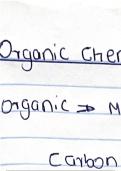 Organic Cher
organic ⇒ M
Carbon